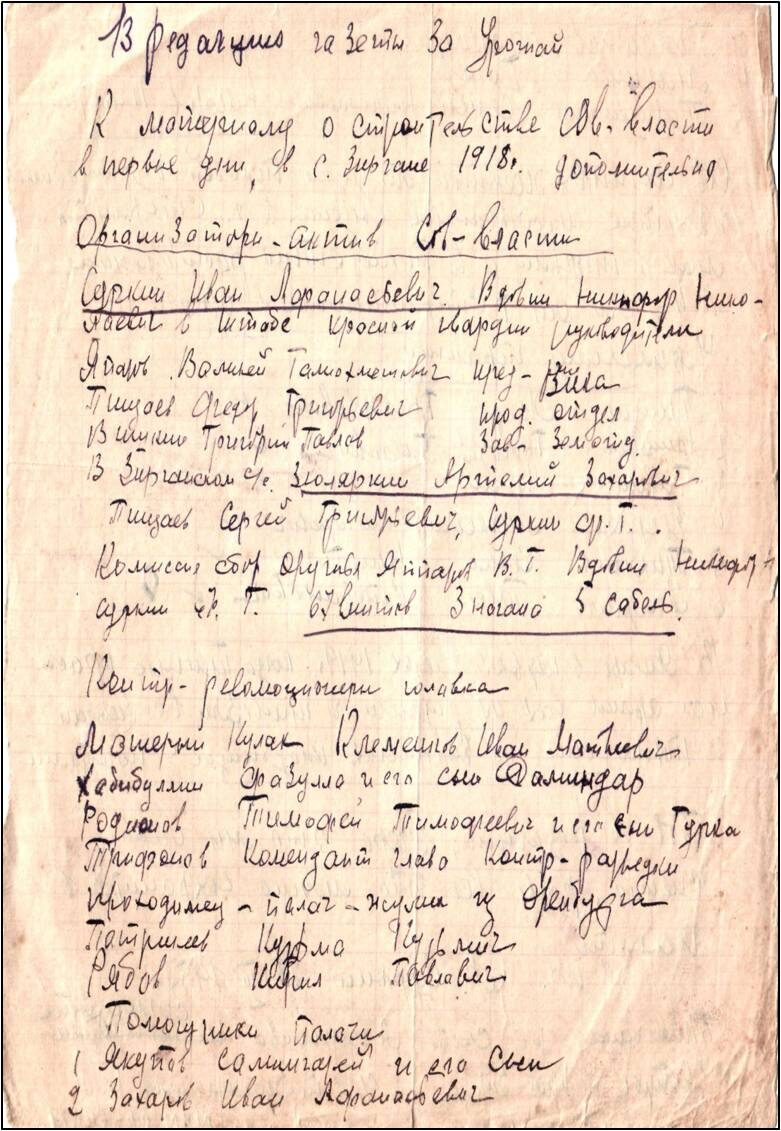 В редакцию газеты За Урожай
К матерналу о строительстве Сов-власти
в первые дни, в с. Зиргане 1918г. дополнительно
Организатори-актив Сов-власти
Суркин Иван Афанасьевич. Вдовин Никифор Нико-
лаевич в штабе красной гвардии руководители
Яппаров Валикей пред-Вика
Пищаев Федор Григорьевич прод. отдел
Григорий Павлов Зав-Земотд.
В Зирганском с/с. Зюляркин Артемий Захарович
Пищаев Сергей Григорьевич, Суркин Ф. Г.
Комиссия сбор оружья Яппаров В. Г. Вдовин Никифор Н
Суркин Ф. Г. 67 винтов 3 нагана 5 сабель.
Контр-революционери головка
Матерый Кулак Клементов Иван Матвеевич
Хабибуллин Фазулла и его сын Даминдар
Родионов Тимофей Тимофеевич и его сын Гурка
Трифонов Комендант глава Контр-разведки
проходимец-палач-жулик из Оренбурга
Патрилев Кузьма Кузьмич
Рябов Кирил Павлавич
Помощники Палачи
1 Якупов Самигарей и его Сын
2 Захаров Иван Афанасьевич